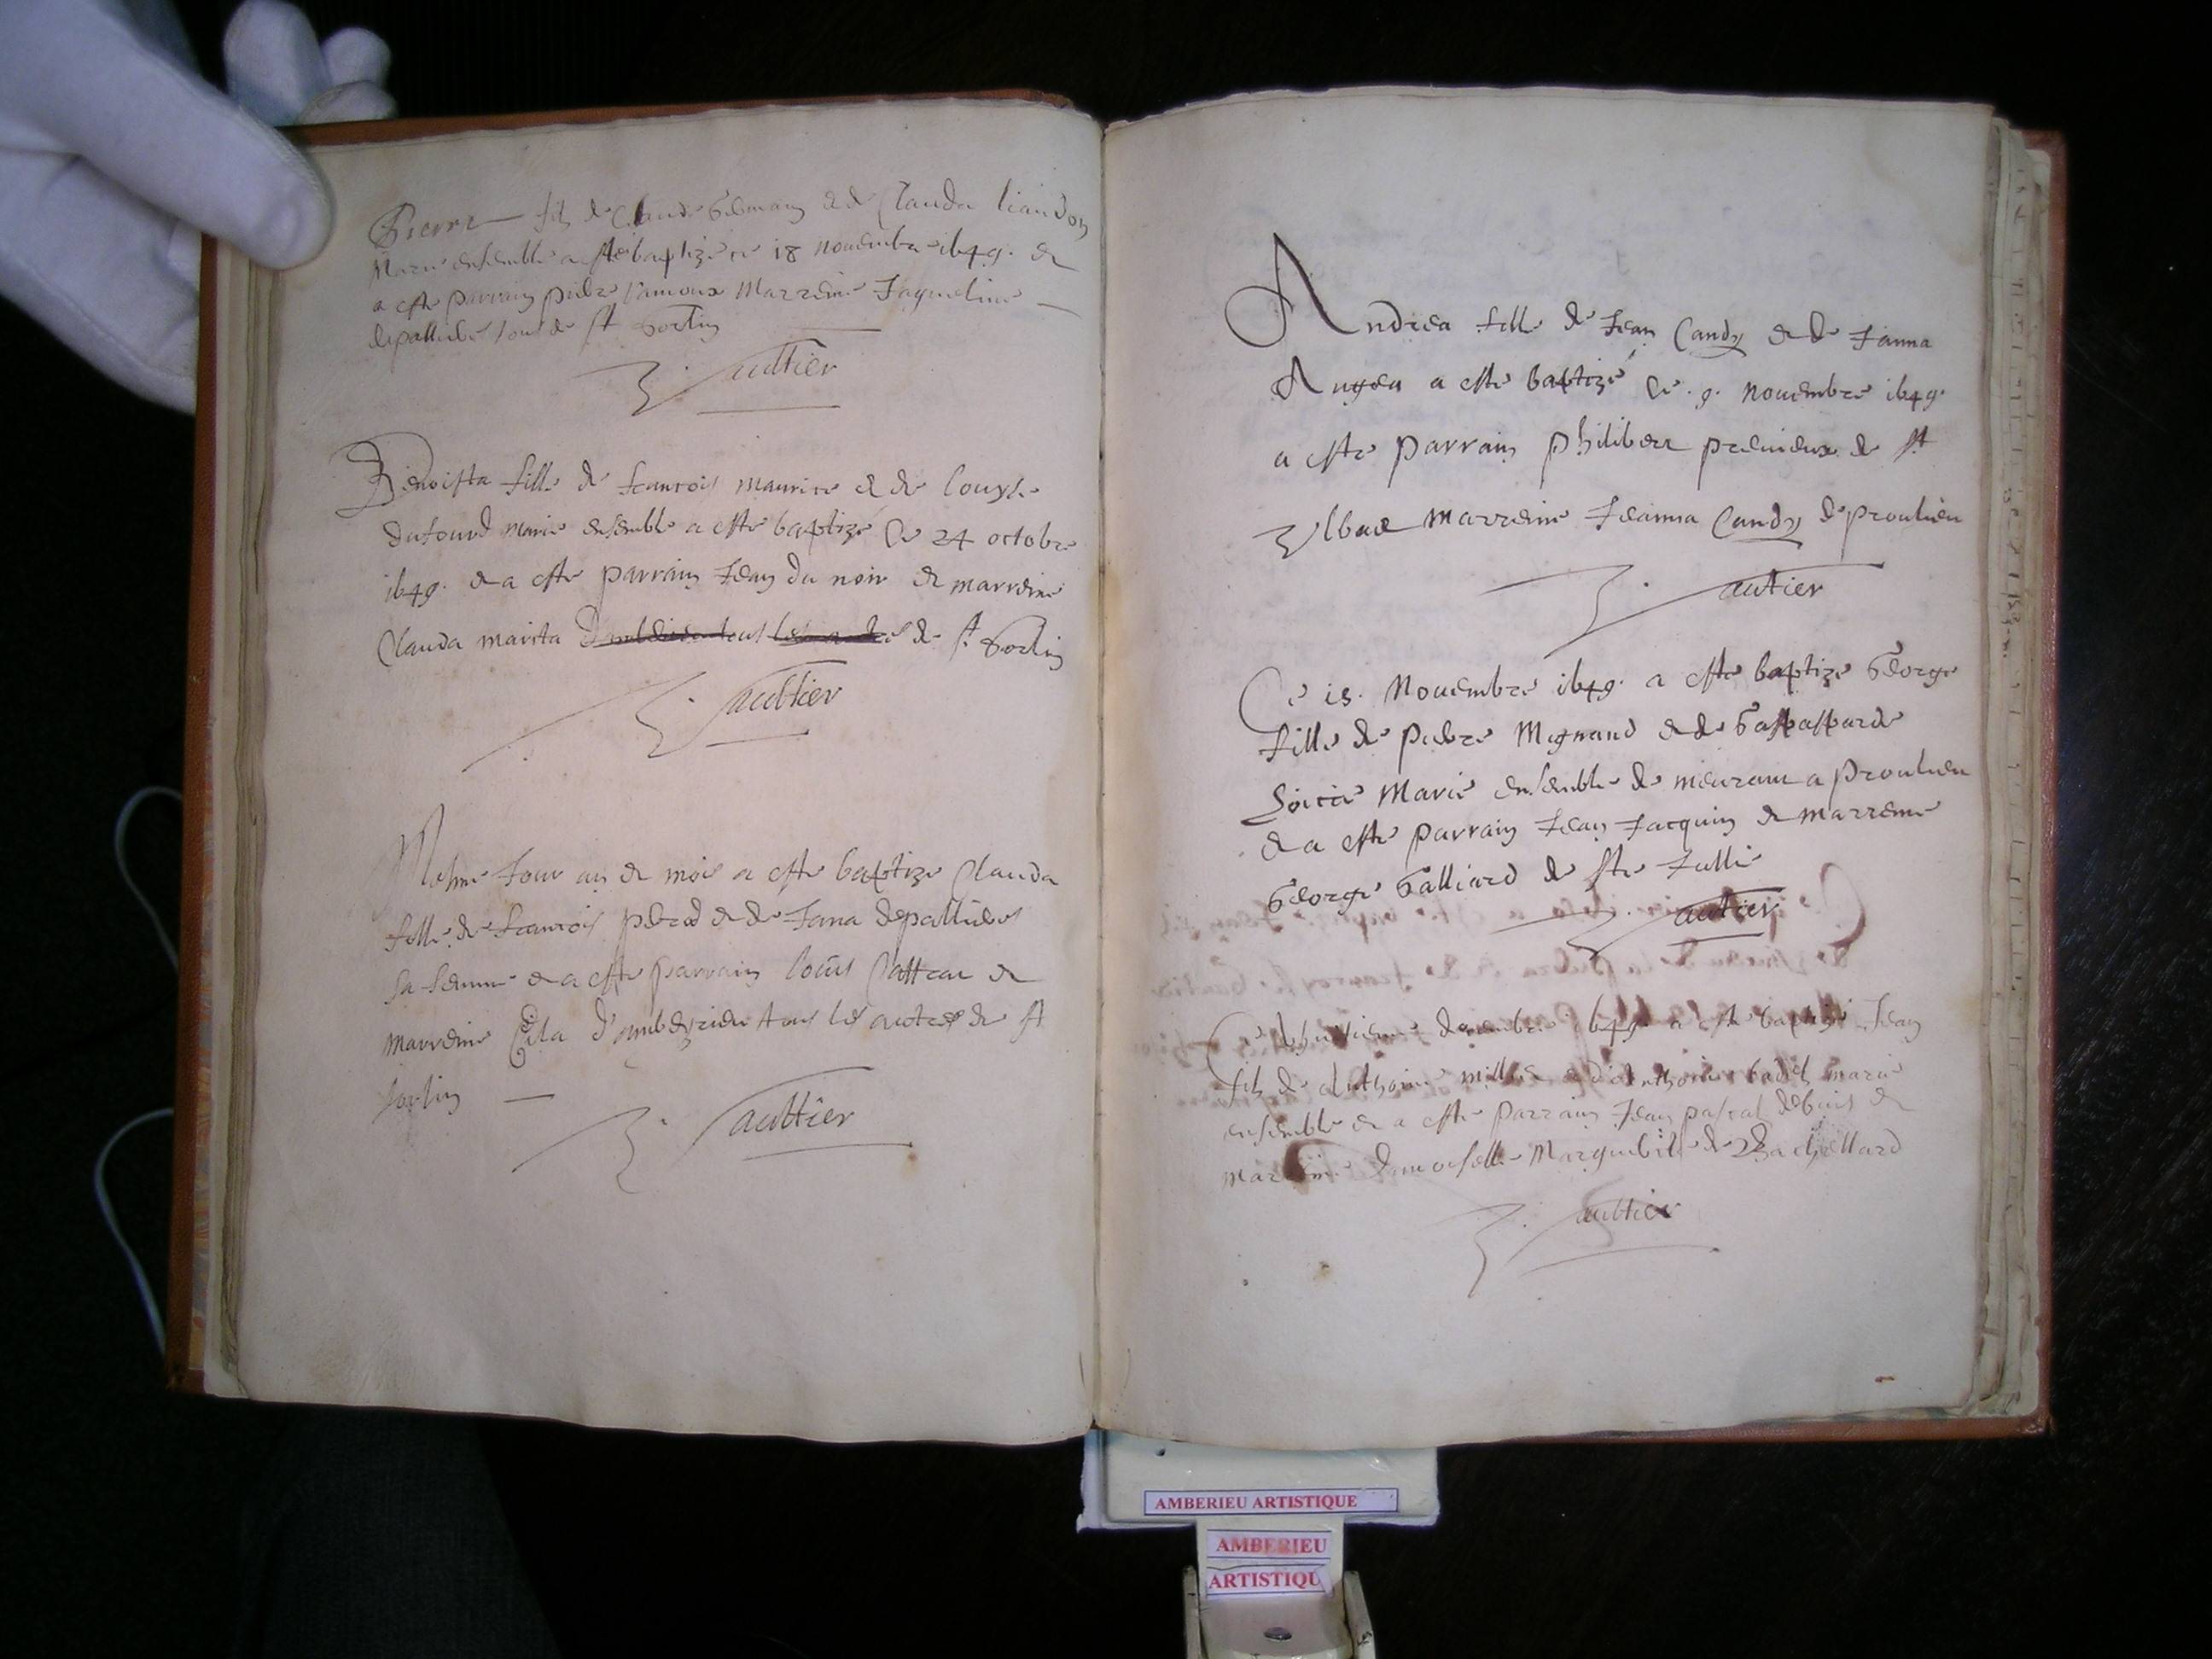 Pierre fils de Claude Germain et de Clauda liandon
Marie ensemble a este baptize ce 18 nouembre 1649. et
a este parrain pierre Ramoux Marreine Jaqueline
depallieres tous de st Sorlin
Gaultier
Benoista fille de francois maurice et de Louyse
dufourd marie ensemble a este baptizé Ce 24 octobre
1649. et a este parrain Jean du noir et marreine
Clauda maista de st Sorlin
Gaultier
Mesme Jour an et mois a este baptize Clauda
fille de francois et de Jana depallieres
sa femme et a este parrain louis et
marreine d'amberieu tous les autres de st
sorlin
Gaultier
Andrea fille de Jean Candy et de Janna
Augea a este baptizé Ce . 9. Nouembre 1649.
a este parrain philibert premieux de st
marreine Jeanna Candy de proulieu
Gautier
Ce 15. Nouembre 1649. a este baptize George
fille de pierre Mignand et de Gaspasparde
Marie ensemble de meurant a proulieu
et a este parrain Jean Jacquin et marreine
George Galliard de ste Jullie
Gautier
Ce decembre 1649 a este baptize Jean
fils de Anthoine millet et d'Anthoine badet marie
ensemble et a este parrain Jean pascal et
marreine damoiselle Marguerite de Bachellard
Gaultier
AMBERIEU ARTISTIQUE
AMBERIEU
ARTISTIQU